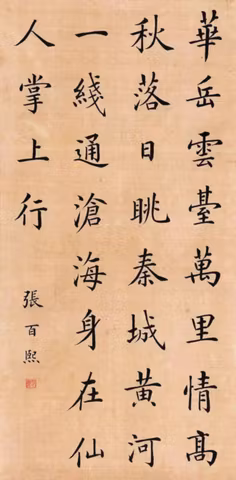 華岳雲臺萬里情高
秋落日眺秦城黃河
一綫通滄海身在仙
人掌上行
張百熙